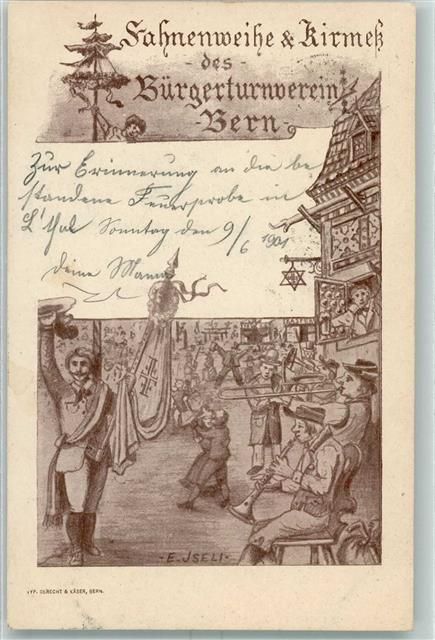 Fahnenweihe & Kirmeß
- des -
Bürgerturnverein
Bern
Zur Erinnerung an die be
standene Feuerprobe in
L'thal Sonntag den 9/6 1901
deine Mama
E. JSELI
TYP. OBRECHT & KÄSER, BERN.